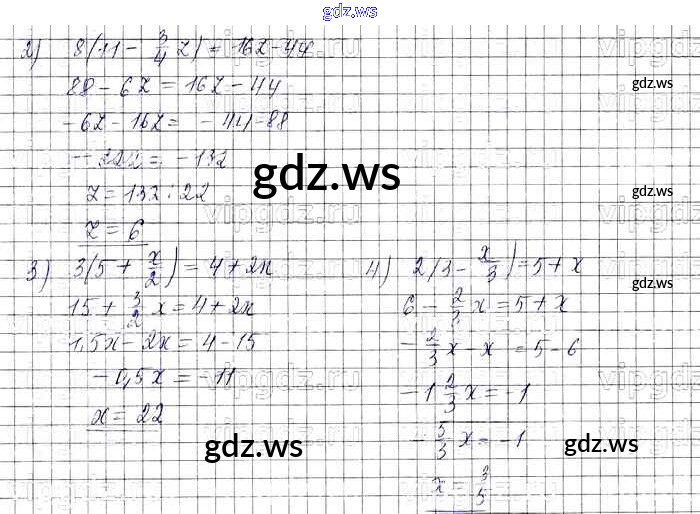 gdz.ws
2) 8(11 - 3/4 z) = 16z - 44
88 - 6z = 16z - 44
gdz.ws
-6z - 16z = -44 - 88
-22z = -132
gdz.ws
z = 132 : 22
gdz.ws
z = 6
vipgdz.ru
3) 3(5 + x/2) = 4 + 2x
15 + 3/2 x = 4 + 2x
1,5x - 2x = 4 - 15
-0,5x = -11
x = 22
gdz.ws
4) 2(3 - x/3) = 5 + x
gdz.ws
6 - 2/3 x = 5 + x
-2/3 x - x = 5 - 6
-1 2/3 x = -1
-5/3 x = -1
gdz.ws
x = 3/5